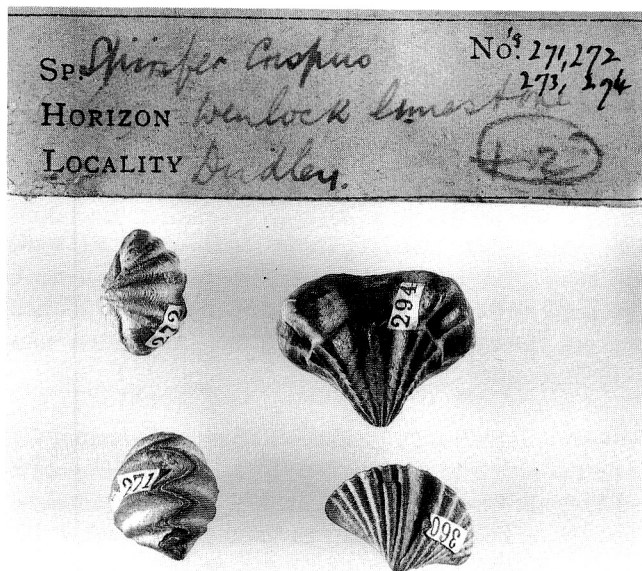 SP. Spirifer Crispus No's 271, 272
273, 274
HORIZON Wenlock limestone
LOCALITY Dudley.
272
294
271
360